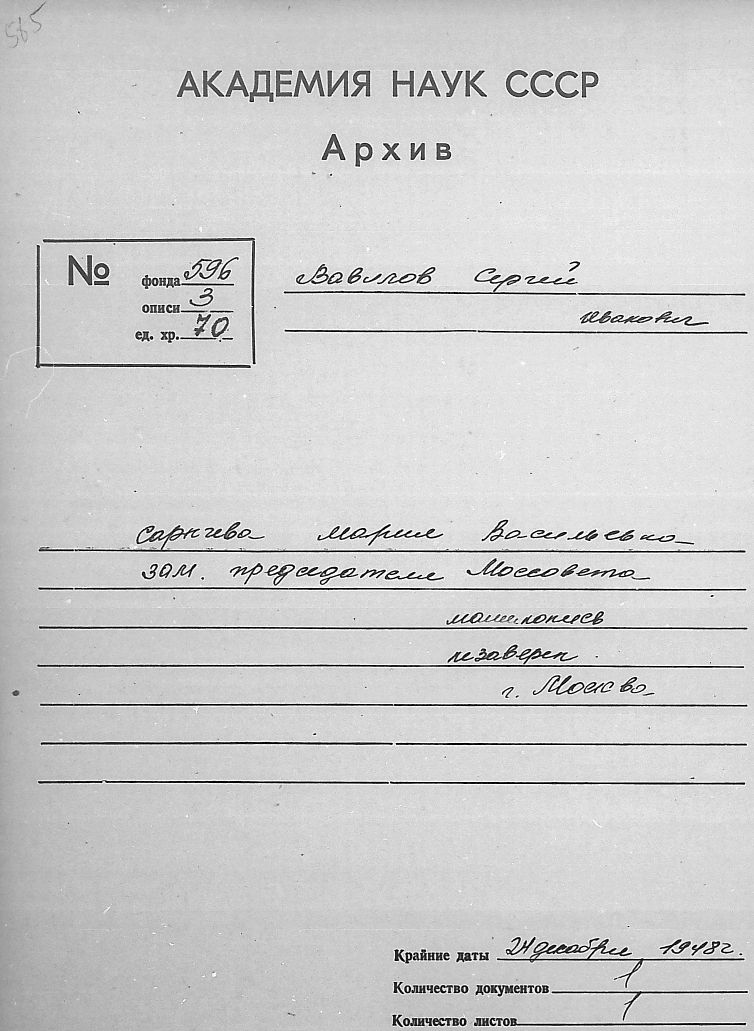 565
АКАДЕМИЯ НАУК СССР
Архив
№
фонда 596
описи 3
ед. хр. 70
Вавилов Сергей
Иванович
Сарычева Мария Васильевна
зам. председателя Моссовета
машинопись
незаверен.
г. Москва
Крайние даты 24 декабря 1948 г.
Количество документов 1
Количество листов 1